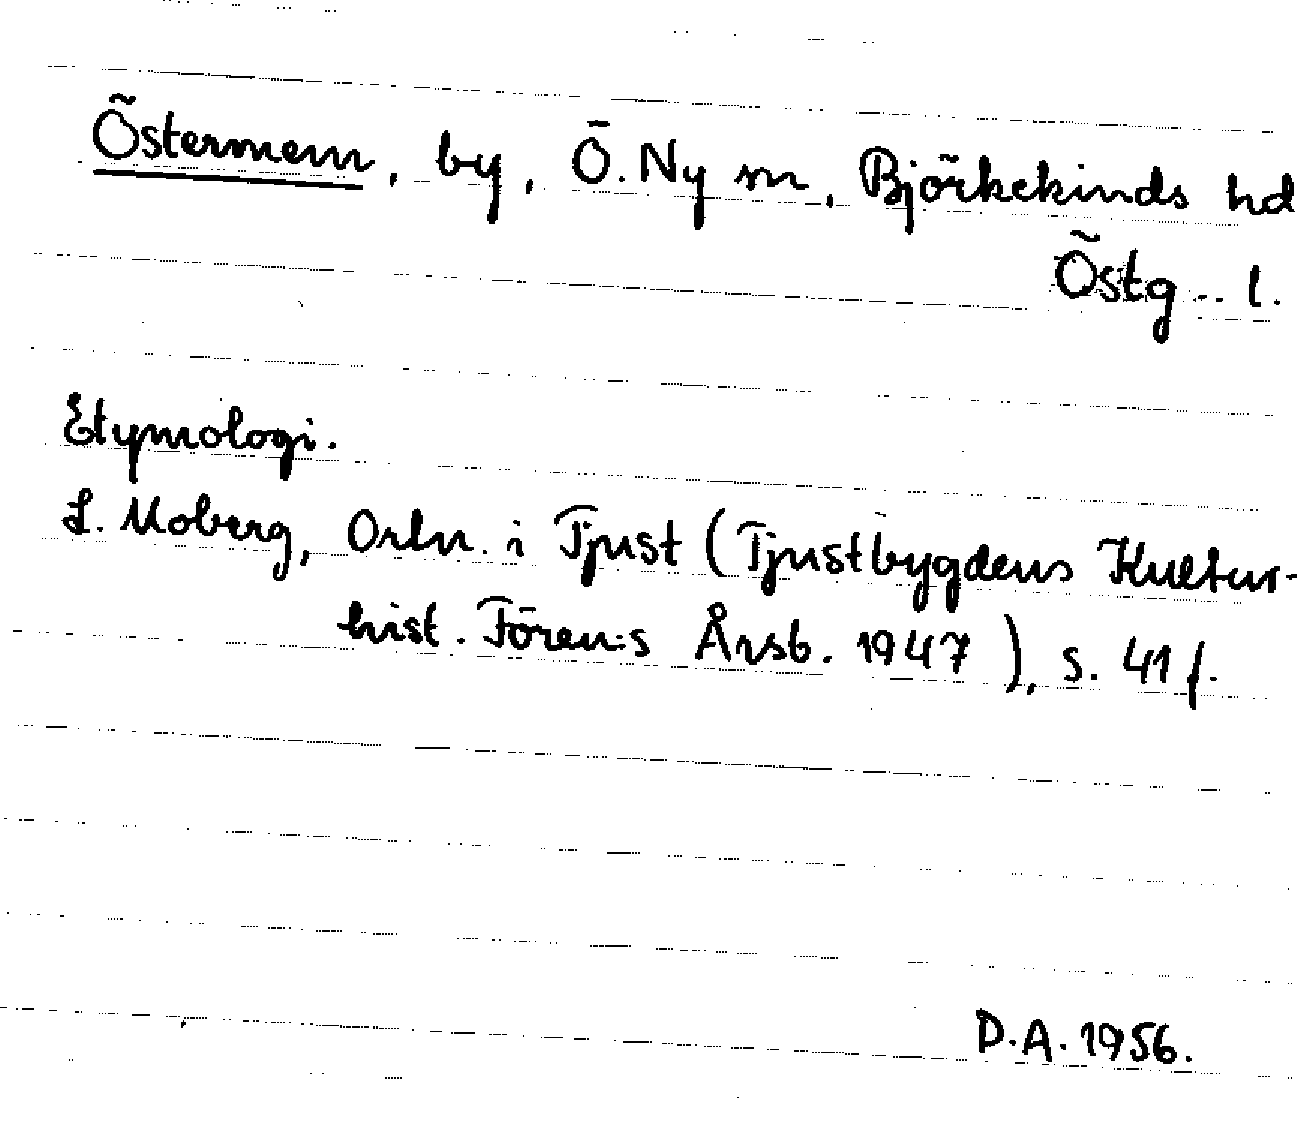 Östermem, by, Ö. Ny sn, Björkekinds hd
Östg.. l.
Etymologi.
L. Moberg, Ortn. i Tjust (Tjustbygdens Kultur-
hist. Fören:s Årsb. 1947), s. 41 f.
D.A. 1956.